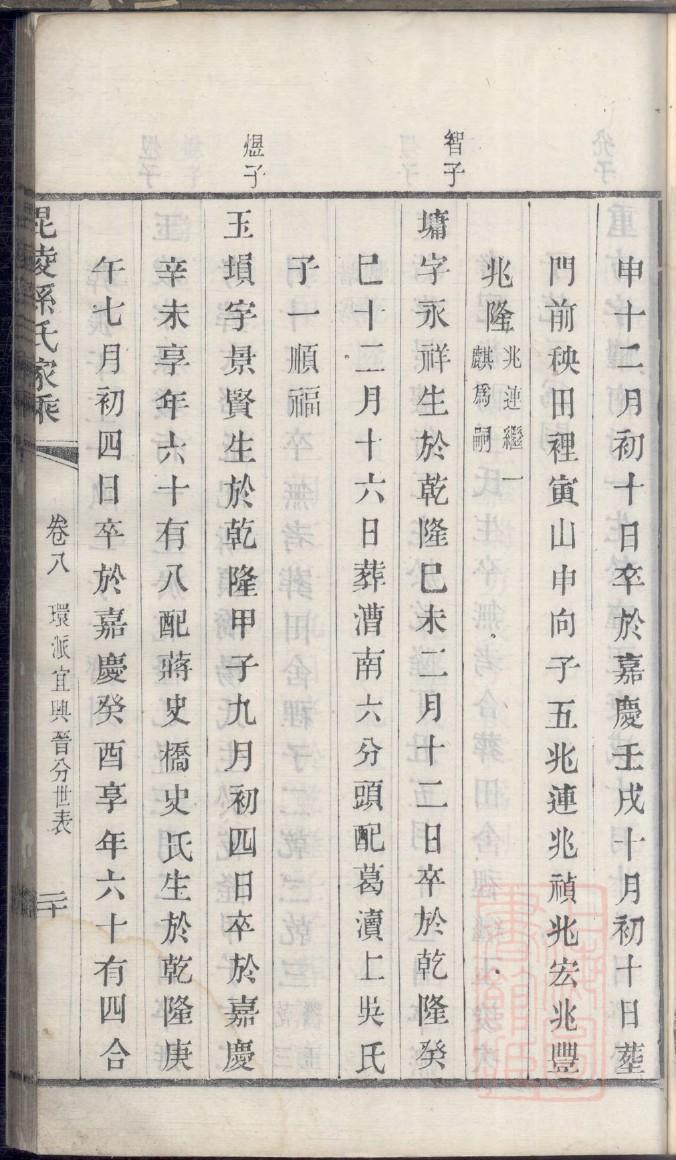 申十二月初十日卒於嘉慶壬戌十月初十日塟
門前秧田裡寅山申向子五兆連兆禎兆宏兆豐
兆隆兆連繼一
麒爲嗣
智子
墉字永祥生於乾隆己未二月十二日卒於乾隆癸
巳十二月十六日葬漕南六分頭配葛瀆上吳氏
子一順福
煜子
玉塤字景賢生於乾隆甲子九月初四日卒於嘉慶
辛未享年六十有八配蔣史橋史氏生於乾隆庚
午七月初四日卒於嘉慶癸酉享年六十有四合
毘陵孫氏家乘
卷八 環派宜興晉分世表 二十